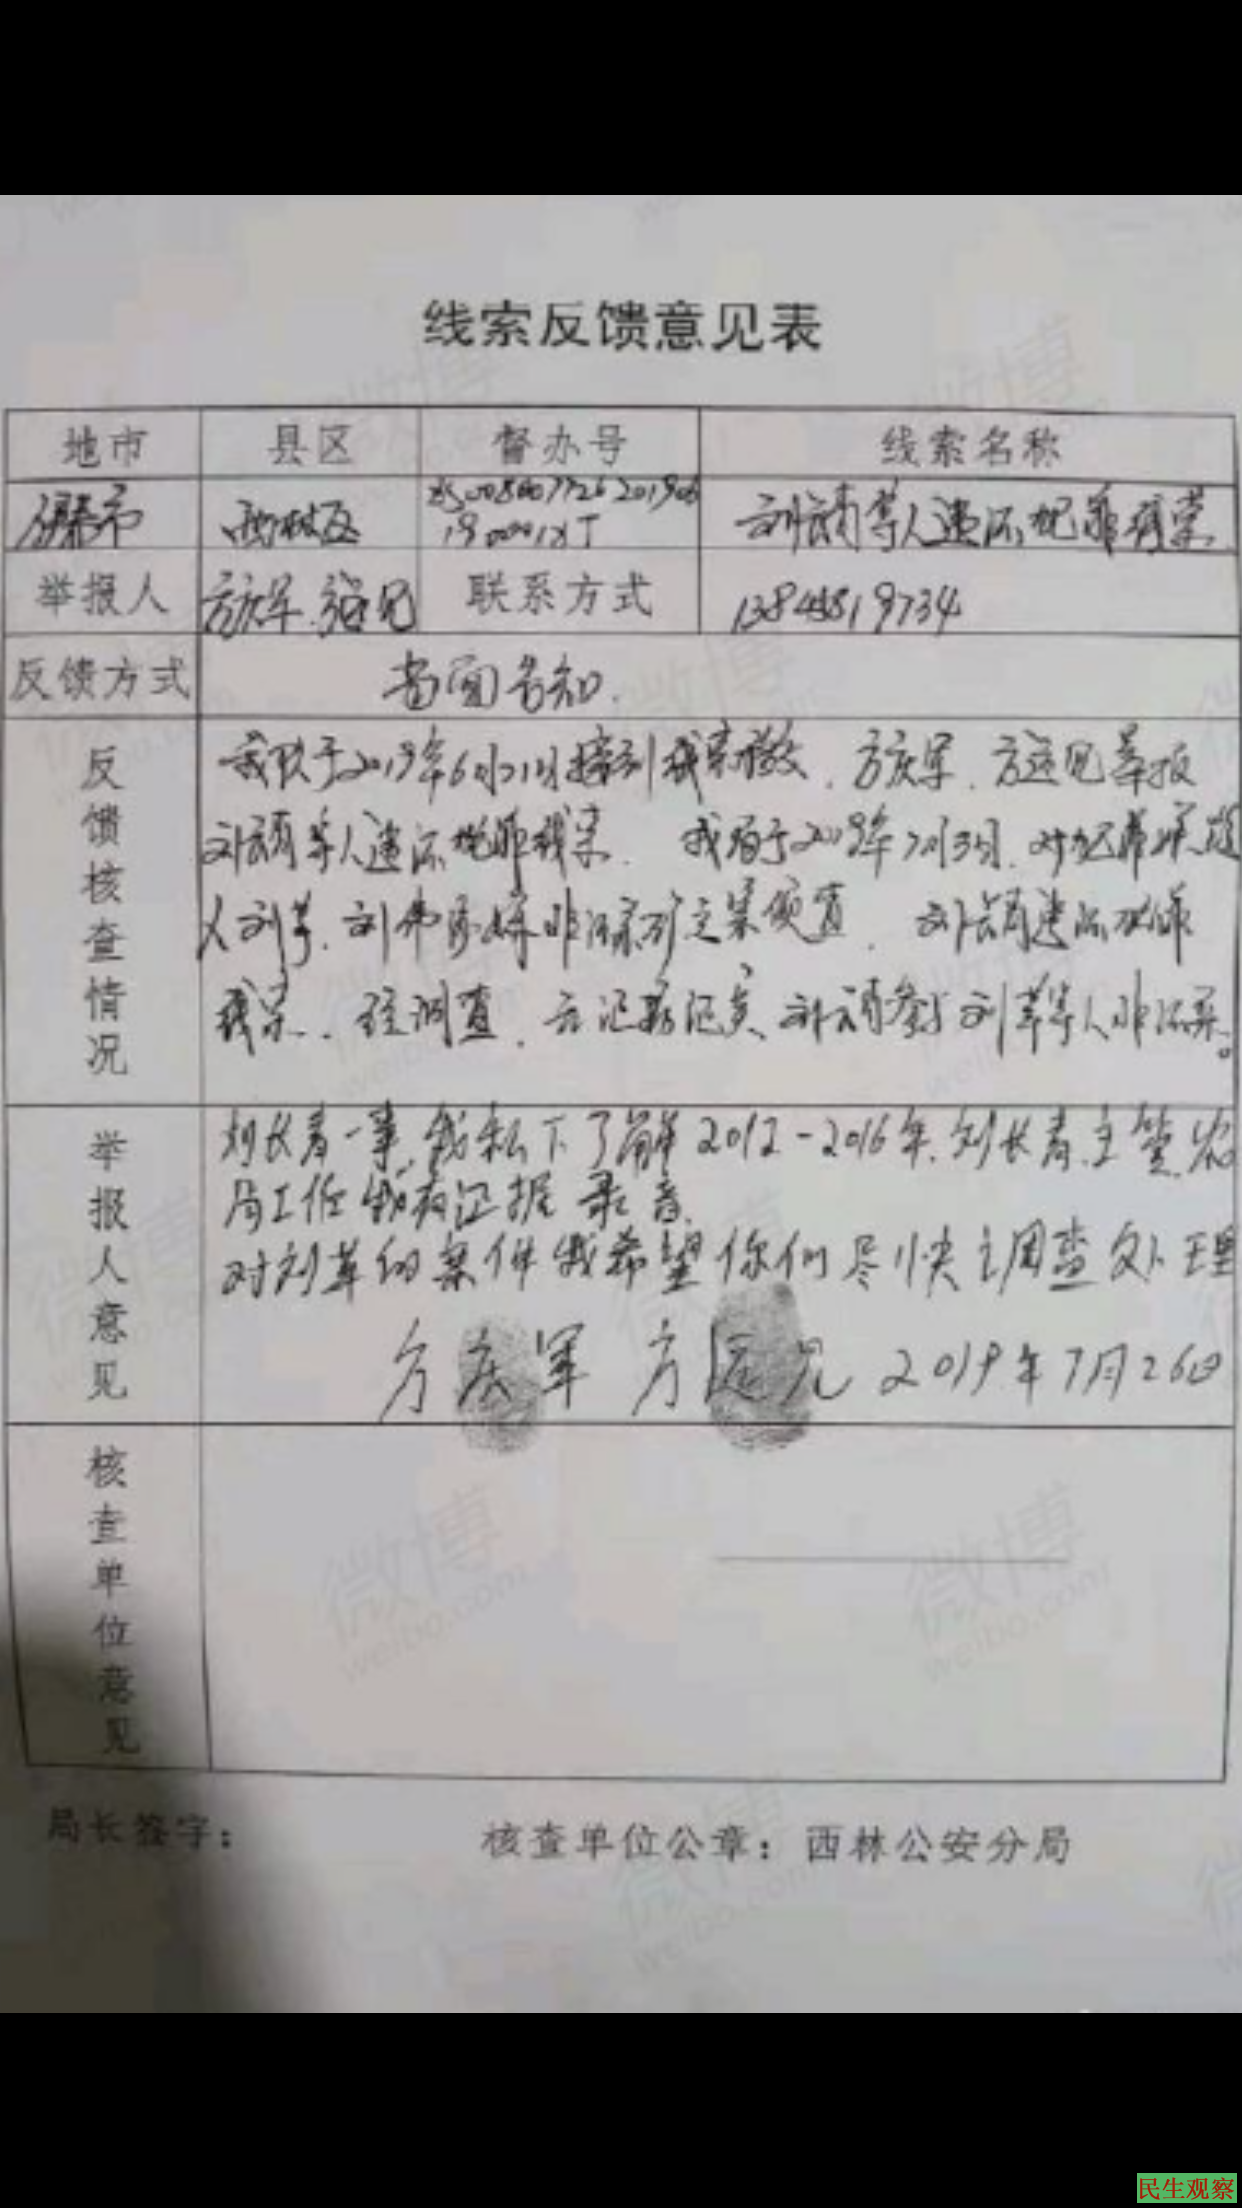 线索反馈意见表
地市 县区 督办号 线索名称
伊春市 西林区 刘长青等人违法犯罪线索
举报人 方庆军 联系方式
反馈方式 当面告知.
反馈核查情况
我队于2019年6月21日接到线索 方庆军 方远见举报
刘长青等人违法犯罪线索. 我局于2019年7月3日 对犯罪嫌疑
人刘革 刘 非法采矿立案侦查 刘长青违法犯罪
线索 经调查 无证据证实 刘长青参与刘革等人非法采
举报人意见
刘长青一事 我私下了解2012-2016年 刘长青主管
局工作我有证据录音
对刘革的案件我希望你们尽快调查处理
方庆军 方远见 2019年7月26日
核查单位意见
局长签字: 核查单位公章: 西林公安分局
微博
weibo.com
民生观察